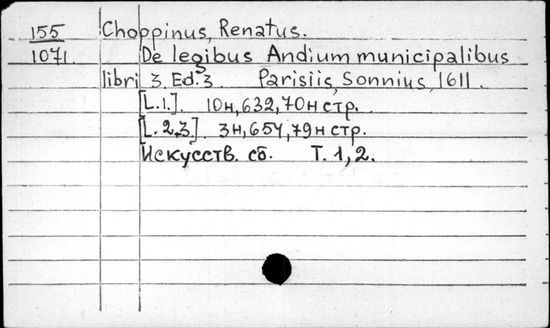 155 Choppinus, Renatus.
1071 De legibus Andium municipalibus
libri 3. Ed. 3. Parisiis, Sonnius, 1611.
[L.1.]. 10н, 632, 70н стр.
[L.2,3.]. 3н, 654, 79н стр.
Искусств. сб. Т. 1, 2.